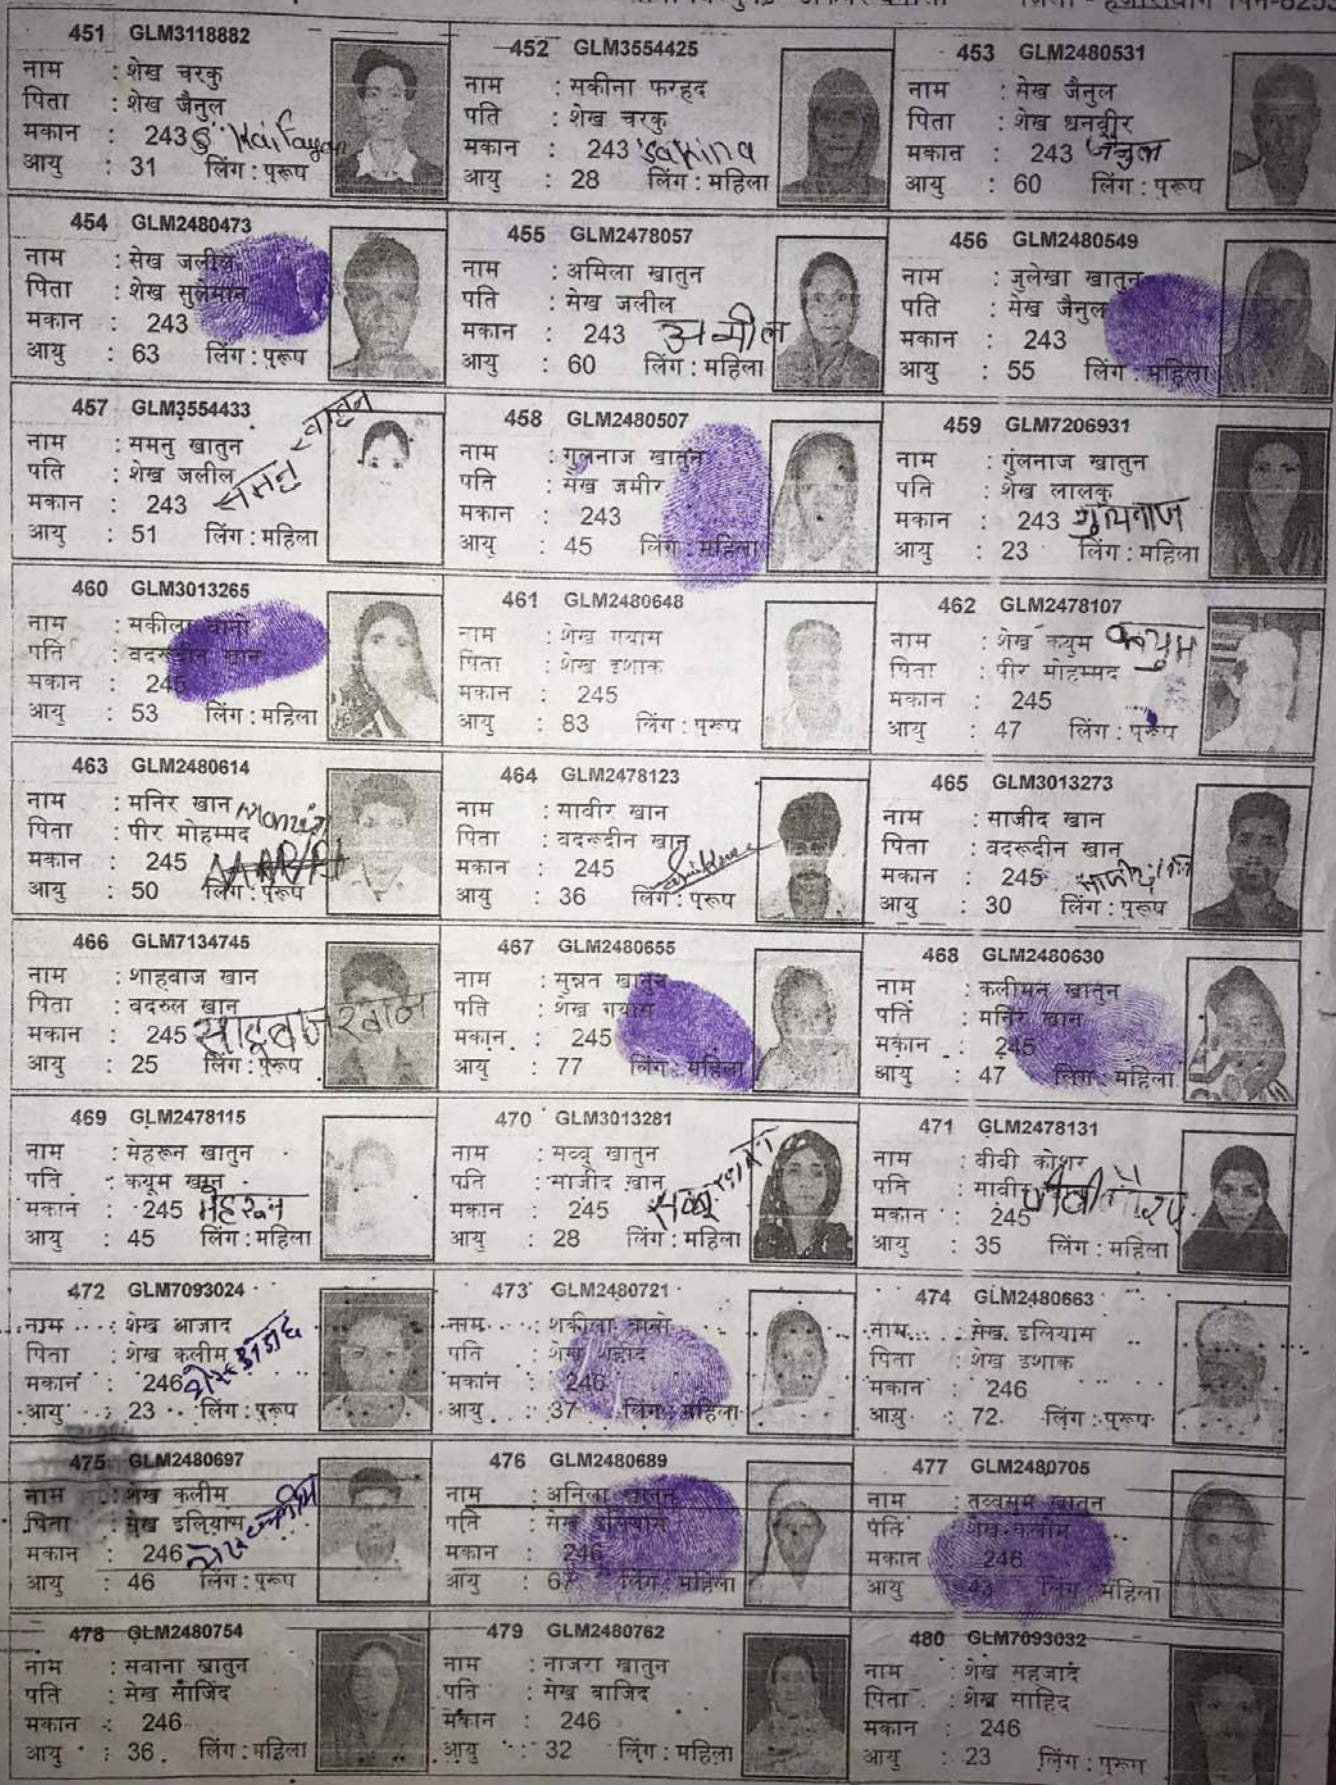 451 GLM3118882
नाम : शेख चरकु
पिता : शेख जैनुल
मकान : 243
आयु : 31 लिंग : पुरूष
452 GLM3554425
नाम : सकीना फरहद
पति : शेख चरकु
मकान : 243 Sakina
आयु : 28 लिंग : महिला
453 GLM2480531
नाम : सेख जैनुल
पिता : शेख धनवीर
मकान : 243 जैनुल
आयु : 60 लिंग : पुरूष
454 GLM2480473
नाम : सेख जलील
पिता : शेख सुलेमान
मकान : 243
आयु : 63 लिंग : पुरूष
455 GLM2478057
नाम : अमिला खातुन
पति : सेख जलील
मकान : 243 अमील
आयु : 60 लिंग : महिला
456 GLM2480549
नाम : जुलेखा खातुन
पति : सेख जैनुल
मकान : 243
आयु : 55 लिंग : महिला
457 GLM3554433
नाम : समनु खातुन
पति : शेख जलील
मकान : 243 समनु खातुन
आयु : 51 लिंग : महिला
458 GLM2480507
नाम : गुलनाज खातुन
पति : सेख जमीर
मकान : 243
आयु : 45 लिंग : महिला
459 GLM7206931
नाम : गुलनाज खातुन
पति : शेख लालकु
मकान : 243
आयु : 23 लिंग : महिला
460 GLM3013265
नाम : सकीला बानो
पति : बदरूदीन खान
मकान : 245
आयु : 53 लिंग : महिला
461 GLM2480648
नाम : शेख गयास
पिता : शेख इशाक
मकान : 245
आयु : 83 लिंग : पुरूष
462 GLM2478107
नाम : शेख कयुम कयुम
पिता : पीर मोहम्मद
मकान : 245
आयु : 47 लिंग : पुरूष
463 GLM2480614
नाम : मनिर खान
पिता : पीर मोहम्मद
मकान : 245
आयु : 50 लिंग : पुरूष
464 GLM2478123
नाम : सावीर खान
पिता : वदरूदीन खान
मकान : 245
आयु : 36 लिंग : पुरूष
465 GLM3013273
नाम : साजीद खान
पिता : वदरूदीन खान
मकान : 245
आयु : 30 लिंग : पुरूष
466 GLM7134745
नाम : शाहबाज खान
पिता : वदरुल खान
मकान : 245
आयु : 25 लिंग : पुरूष
467 GLM2480655
नाम : सुन्नत खातुन
पति : शेख गयास
मकान : 245
आयु : 77 लिंग : महिला
468 GLM2480630
नाम : कलीमन खातुन
पति : मनिर खान
मकान : 245
आयु : 47 लिंग : महिला
469 GLM2478115
नाम : मेहरून खातुन
पति : कयूम खान
मकान : 245 मेहरून
आयु : 45 लिंग : महिला
470 GLM3013281
नाम : सब्बु खातुन
पति : साजीद खान
मकान : 245
आयु : 28 लिंग : महिला
471 GLM2478131
नाम : वीवी कोशर
पति : सावीर
मकान : 245
आयु : 35 लिंग : महिला
472 GLM7093024
नाम : शेख आजाद
पिता : शेख कलीम
मकान : 246 शेख आजाद
आयु : 23 लिंग : पुरूष
473 GLM2480721
नाम : शकीला बानो
पति : शेख शहीद
मकान : 246
आयु : 37 लिंग : महिला
474 GLM2480663
नाम : सेख इलियास
पिता : शेख इशाक
मकान : 246
आयु : 72 लिंग : पुरूष
475 GLM2480697
नाम : शेख कलीम
पिता : सेख इलियास
मकान : 246 शेख कलीम
आयु : 46 लिंग : पुरूष
476 GLM2480689
नाम : अनिला खातुन
पति : सेख इलियास
मकान : 246
आयु : 67 लिंग : महिला
477 GLM2480705
नाम : तव्वसुम खातुन
पति : शेख कलीम
मकान : 246
आयु : 43 लिंग : महिला
478 GLM2480754
नाम : सवाना खातुन
पति : सेख साजिद
मकान : 246
आयु : 36 लिंग : महिला
479 GLM2480762
नाम : नाजरा खातुन
पति : सेख वाजिद
मकान : 246
आयु : 32 लिंग : महिला
480 GLM7093032
नाम : शेख सहजाद
पिता : शेख साहिद
मकान : 246
आयु : 23 लिंग : पुरूष